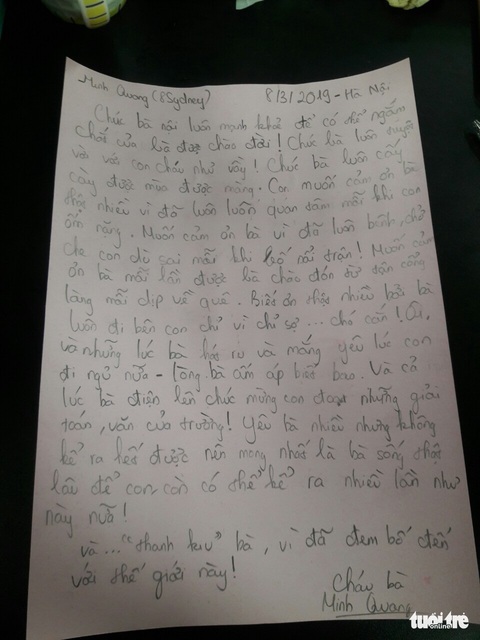 Minh Quang (8Sydney) 8/3/2019 - Hà Nội
Chúc bà nội luôn mạnh khoẻ để có thể ngắm
chắt của bố được chào đời! Chúc bà luôn tuyệt
vời với con cháu như vậy! Chúc bà luôn cấy
cày được mùa được màng. Con muốn cảm ơn bà
thật nhiều vì đã luôn luôn quan tâm mỗi khi con
ốm nặng. Muốn cảm ơn bà vì đã luôn bênh, chở
che con dù sai mỗi khi bố nổi trận! Muốn cảm
ơn bà mỗi lần được bà chào đón từ tận cổng
làng mỗi dịp về quê. Biết ơn thật nhiều bởi bà
luôn đi bên con chỉ vì chỉ sợ... chó cắn! Ôi,
và những lúc bà hát ru và mắng yêu lúc con
đi ngủ nữa - lòng bà ấm áp biết bao. Và cả
lúc bà điện lên chúc mừng con đoạt những giải
toán, văn của trường! Yêu bà nhiều nhưng không
kể ra hết được nên mong nhất là bà sống thật
lâu để con còn có thể kể ra nhiều lần như
này nữa!
và... "thank kiu" bà, vì đã đem bố đến
với thế giới này!
Cháu bà
Minh Quang
tuổi trẻ
online